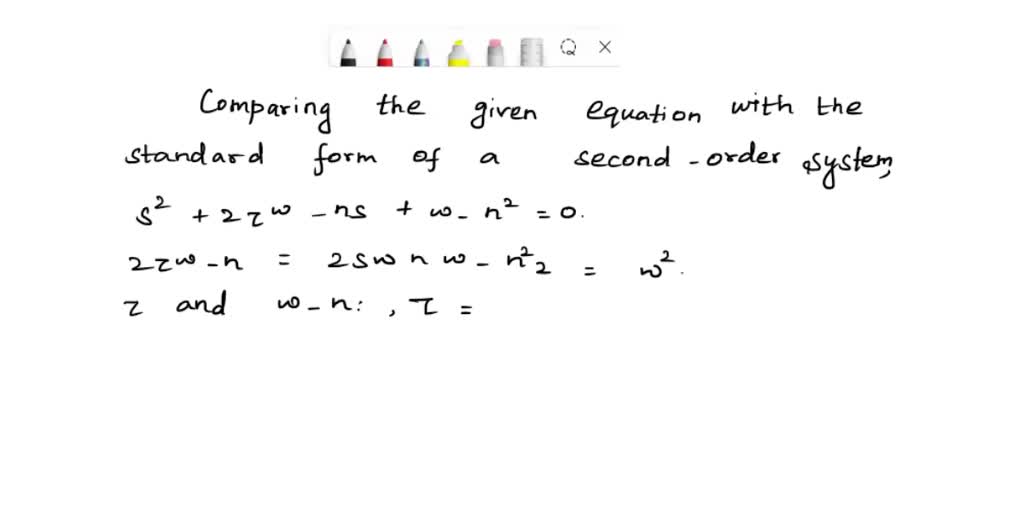 Comparing the given equation with the
standard form of a second-order system,
s² + 2τω - ns + ω - n² = 0.
2τω - n = 2sωn ω - n²₂ = ω².
τ and ω - n: , τ =